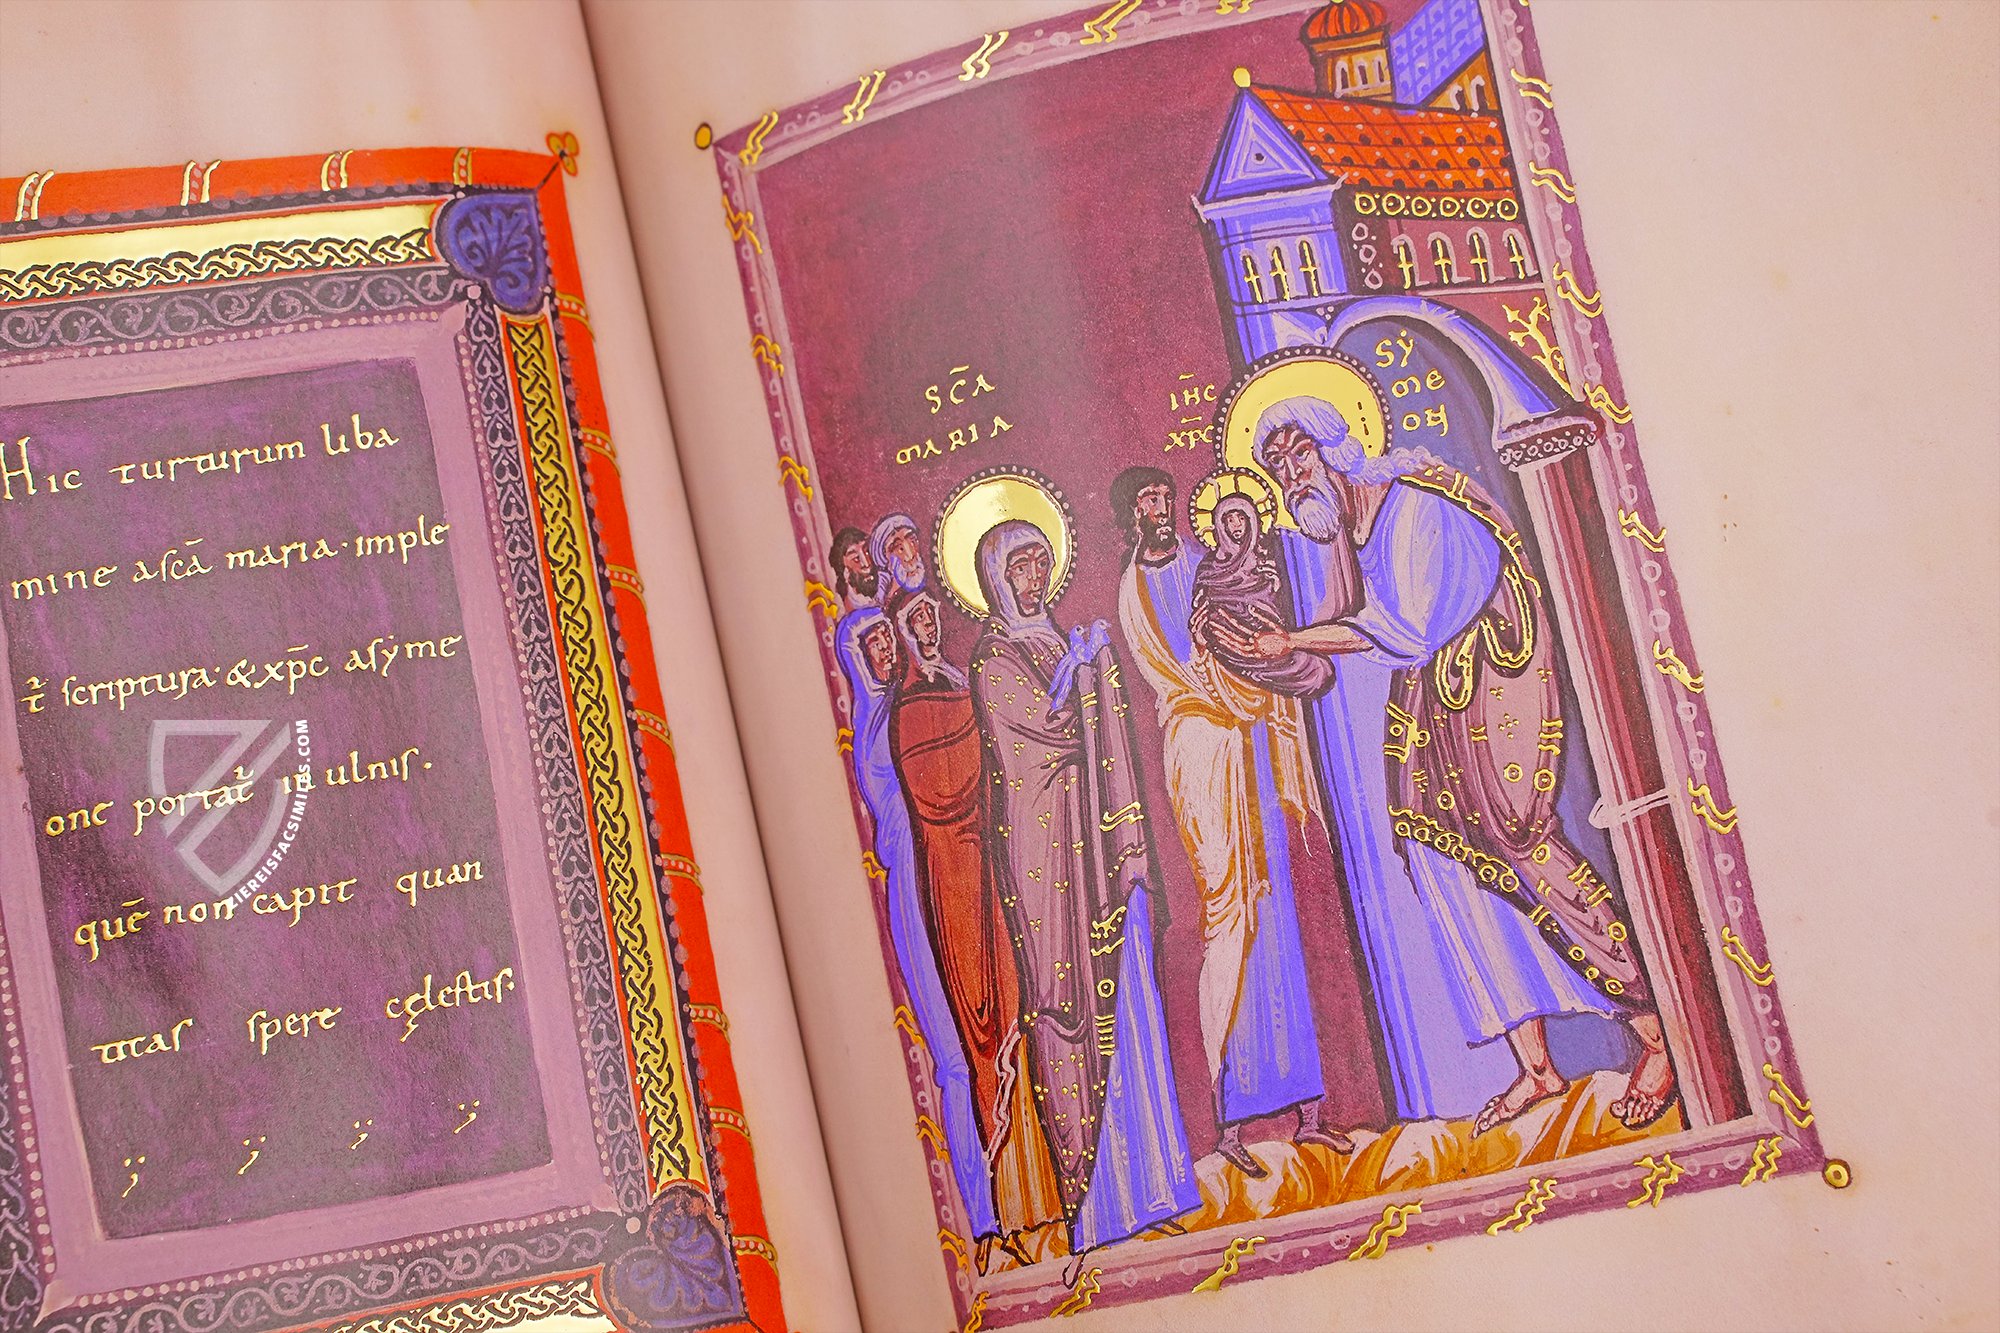 Hic turturum liba
mine a scā maria· imple
t̄ scriptura· & xp̄c a sẏme
onc portat̄ in ulnis.
quē non capit quan
titas spere cęlestis.
SC̄A
MARIA
IH̄C
XP̄C
SẎ
ME
ON
ZIEREISFACSIMILES.COM